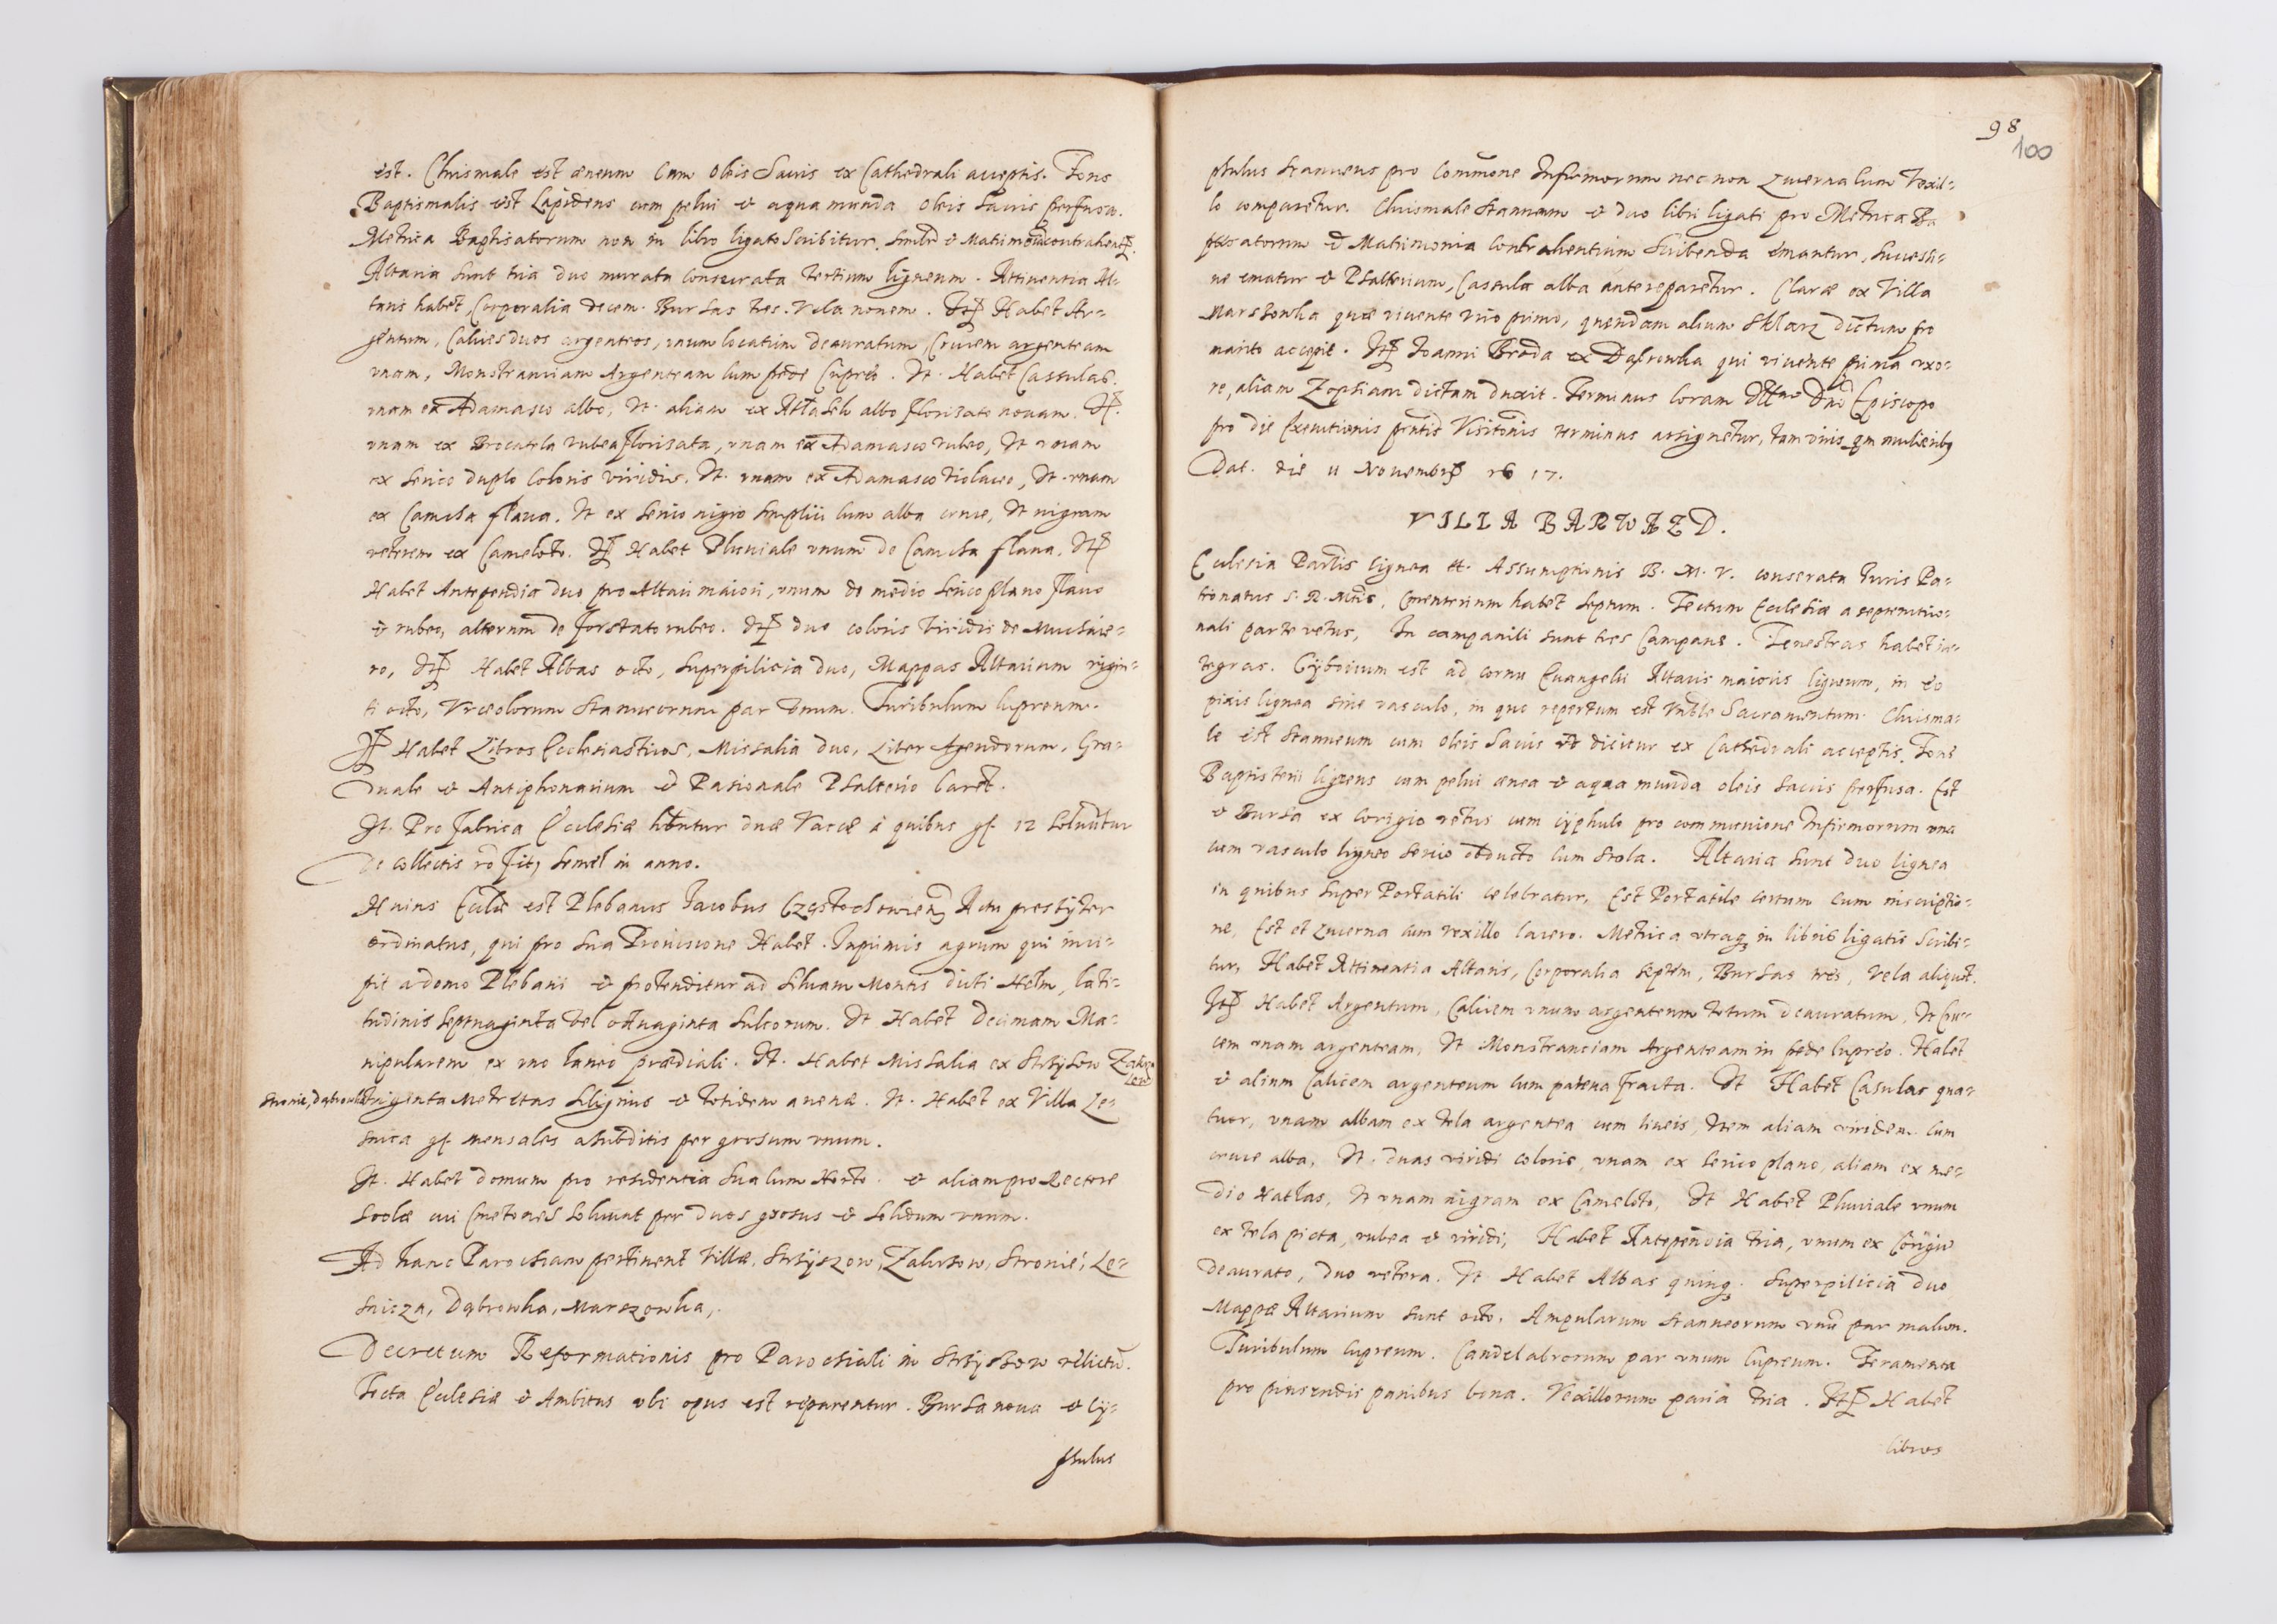 est. Chrismale est aeneum cum oleis Sacris ex Cathedrali acceptis. Fons
Baptismalis est Lapideus cum pelui et aqua munda oleis Sacris perfusa.
Metrica Baptisatorum non in libro ligato Scribitur,
Altaria sunt tria duo murata consecrata tertium ligneum. Attinentia Al-
taris habet, Corporalia decem. Bursas tres. Vela nonem. It Habet Ar-
gentum, Calices duos argenteos, unum locatim deauratum, Crucem argenteam
vnam, Monstranciam Argenteam cum pede Cupreo. It. Habet Cassulas.
vnam ex Adamasco albo, It. aliam ex Atlasch albo florisato nouam. It.
vnam ex Brocatela rubea florisata, vnam ex Adamasco rubeo, It vnam
ex Serico duplo Coloris viridis. It. vnam ex Adamasco violaceo, It. vnam
ex Camcha flaua. It ex Serico nigro Simplici cum alba cruce, It nigram
veterem ex Cameloto. It Habet Pluuiale vnum de Camcha flaua. It
Habet Antependia duo pro Altari maiori, vnum de medio Serico plano flauo
et rubeo, alterum de forstato rubeo. It duo coloris viridis de Muchaie-
ro, It Habet Albas octo, Superpilicia duo, Mappas Altarium vigin-
ti octo, Vrceolorum Stanneorum par vnum. Turibulum Cupreum.
It Habet Libros Ecclesiasticos, Missalia duo, Liber Agendorum, Gra-
duale et Antiphonarium et Pasionale Psalterio Caret.
It. Pro fabrica Ecclesiae hbntur duae Vaccae a quibus gf. 12 Soluuntur
De collectis ro fit, Semel in anno.
Huius Eccliae est Plebanus Iacobus Częstochouien Actu presbyter
ordinatus, qui pro Sua Prouisione Habet. Inprimis agrum qui inci-
pit a domo Plebani et protenditur ad Siluam Montis dicti Helm, lati-
tudinis Septuaginta vel octuaginta Sulcorum. It Habet Decimam Ma-
nipularem ex vno laneo praediali. It. Habet Missalia ex Strysow Zakrzow
Stronie, Dąbrowka triginta Metretas Siliginis et totidem auenae. It. Habet ex Villa Le-
snica gf. Mensales a Subditis per grosum vnum.
It. Habet domum pro residentia Sua cum Horto. et aliam pro Rectore
Scolae cui Cmetones Soluunt per duos grosus et Solidum vnum.
Ad hanc Parochiam pertinent Villae, Stryszow, Zakrzow, Stronie, Le-
snicza, Dąbrowka, Marszowka,
Decretum Reformationis pro Parochiali in Strysow relictu.
Tecta Ecclesiae et Ambitus vbi opus est reparentur. Bursa noua et Cy-
phulus
98
100
phulus Stanneus pro Commone Infirmorum nec non Lucerna cum Vexil-
lo comparetur. Chrismale Stanneum et duo libri ligati pro Metrica Ba
ptisatorum et Matrimonia Contrahentium Scribenda emantur, Successi-
ue ematur et Psalterium, Cassula alba antereparetur. Clarae ex Villa
Marszowka quae viuente viro primo, quendam alium Sklarz dictum pro
marito accepit. It Ioanni Broda ex Dąbrowka qui viuente prima vxo-
re, aliam Zophiam dictam duxit. Terminus Coram Episcopo
pro die Executionis Visitonis terminus assignetur, tam viris qm mulieribus
Dat. die 11 Nouembris 1617.
VILLA BARWAŁD.
Ecclesia Parlis lignea tt. Assumptionis B. M. V. consecrata Iuris Pa-
tronatus S. R. Mtis, Cmenterium habet Septum. Tectum Ecclesiae a septentrio-
nali parte vetus, In campanili sunt tres Campanae. Fenestras habet in-
tegras. Cyborium est ad cornu Euangelii Altaris maioris ligneum, in eo
pixis lignea sine vasculo, in quo repertum est Vnble Sacramentum. Chrisma-
le est Stanneum cum oleis Sacris vt dicitur ex Cathedrali acceptis. Fons
Baptisterii ligneus cum pelui aenea et aqua munda oleis Sacris perfusa. Est
et Bursa ex Corigio vetus cum cyphulo pro communione Infirmorum vna
cum vasculo ligneo Serico obducto cum Stola. Altaria Sunt duo lignea
in quibus Super Portatili celebratur, Est Portatile certum cum inscriptio-
ne, Est et Lucerna cum vexillo lacero. Metrica vtraq in libris ligatis Scribi-
tur, Habet Attinentia Altaris, Corporalia Septem, Bursas tres, Vela aliquot.
It Habet Argentum, Calicem vnum argenteum totum deauratum, It Cru-
cem vnam argenteam, It Monstranciam Argenteam in pede Cupreo. Habet
et alium Calicem argenteum cum patena fracta. It Habet Casulas qua-
tuor, vnam albam ex tela argentea cum liueis, Item aliam viridem cum
cruce alba, It. duas viridi coloris, vnam ex Serico plano, aliam ex me-
dio Hatlas, It vnam nigram ex Cameloto, It Habet Pluuiale vnum
ex tela picta, rubea et viridi, Habet Antependia tria, vnum ex Corigio
deaurato, duo vetera. It Habet Albas quinq. Superpilicia duo
Mappae Altarium sunt octo, Ampularum Stanneorum vnu par malum.
Turibulum Cupreum. Candelabrorum par vnum Cupreum. Feramenta
pro pinsendis panibus bina. Vexillorum paria tria. It Habet
libros